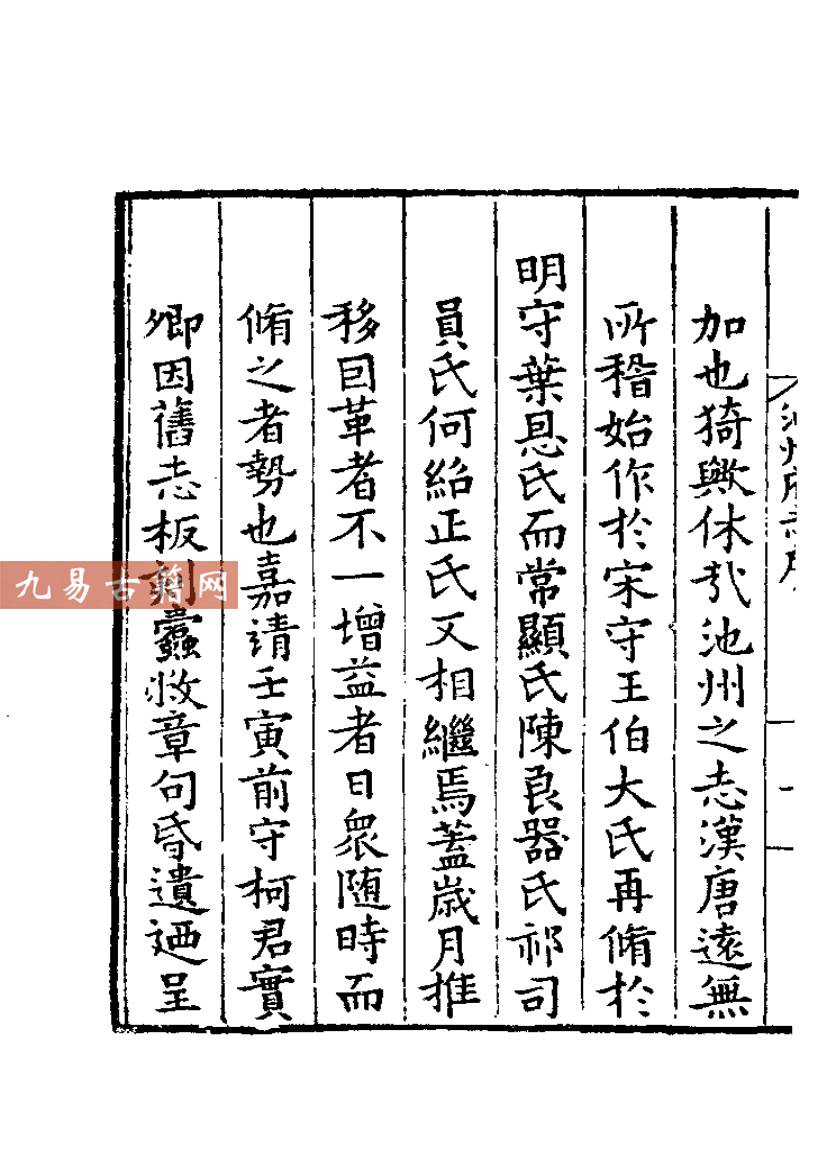 加也猗歟休㢤池州之志漢唐遠無
所稽始作於宋守王伯大氏再脩於
明守葉恩氏而常顯氏陳良器氏祁司
員氏何紹正氏又相繼焉蓋歲月推
移因革者不一增益者日衆随時而
脩之者勢也嘉靖壬寅前守柯君實
卿因舊志板刻蠧敚章句昏遺廼呈
池州府志序
一
九易古籍网